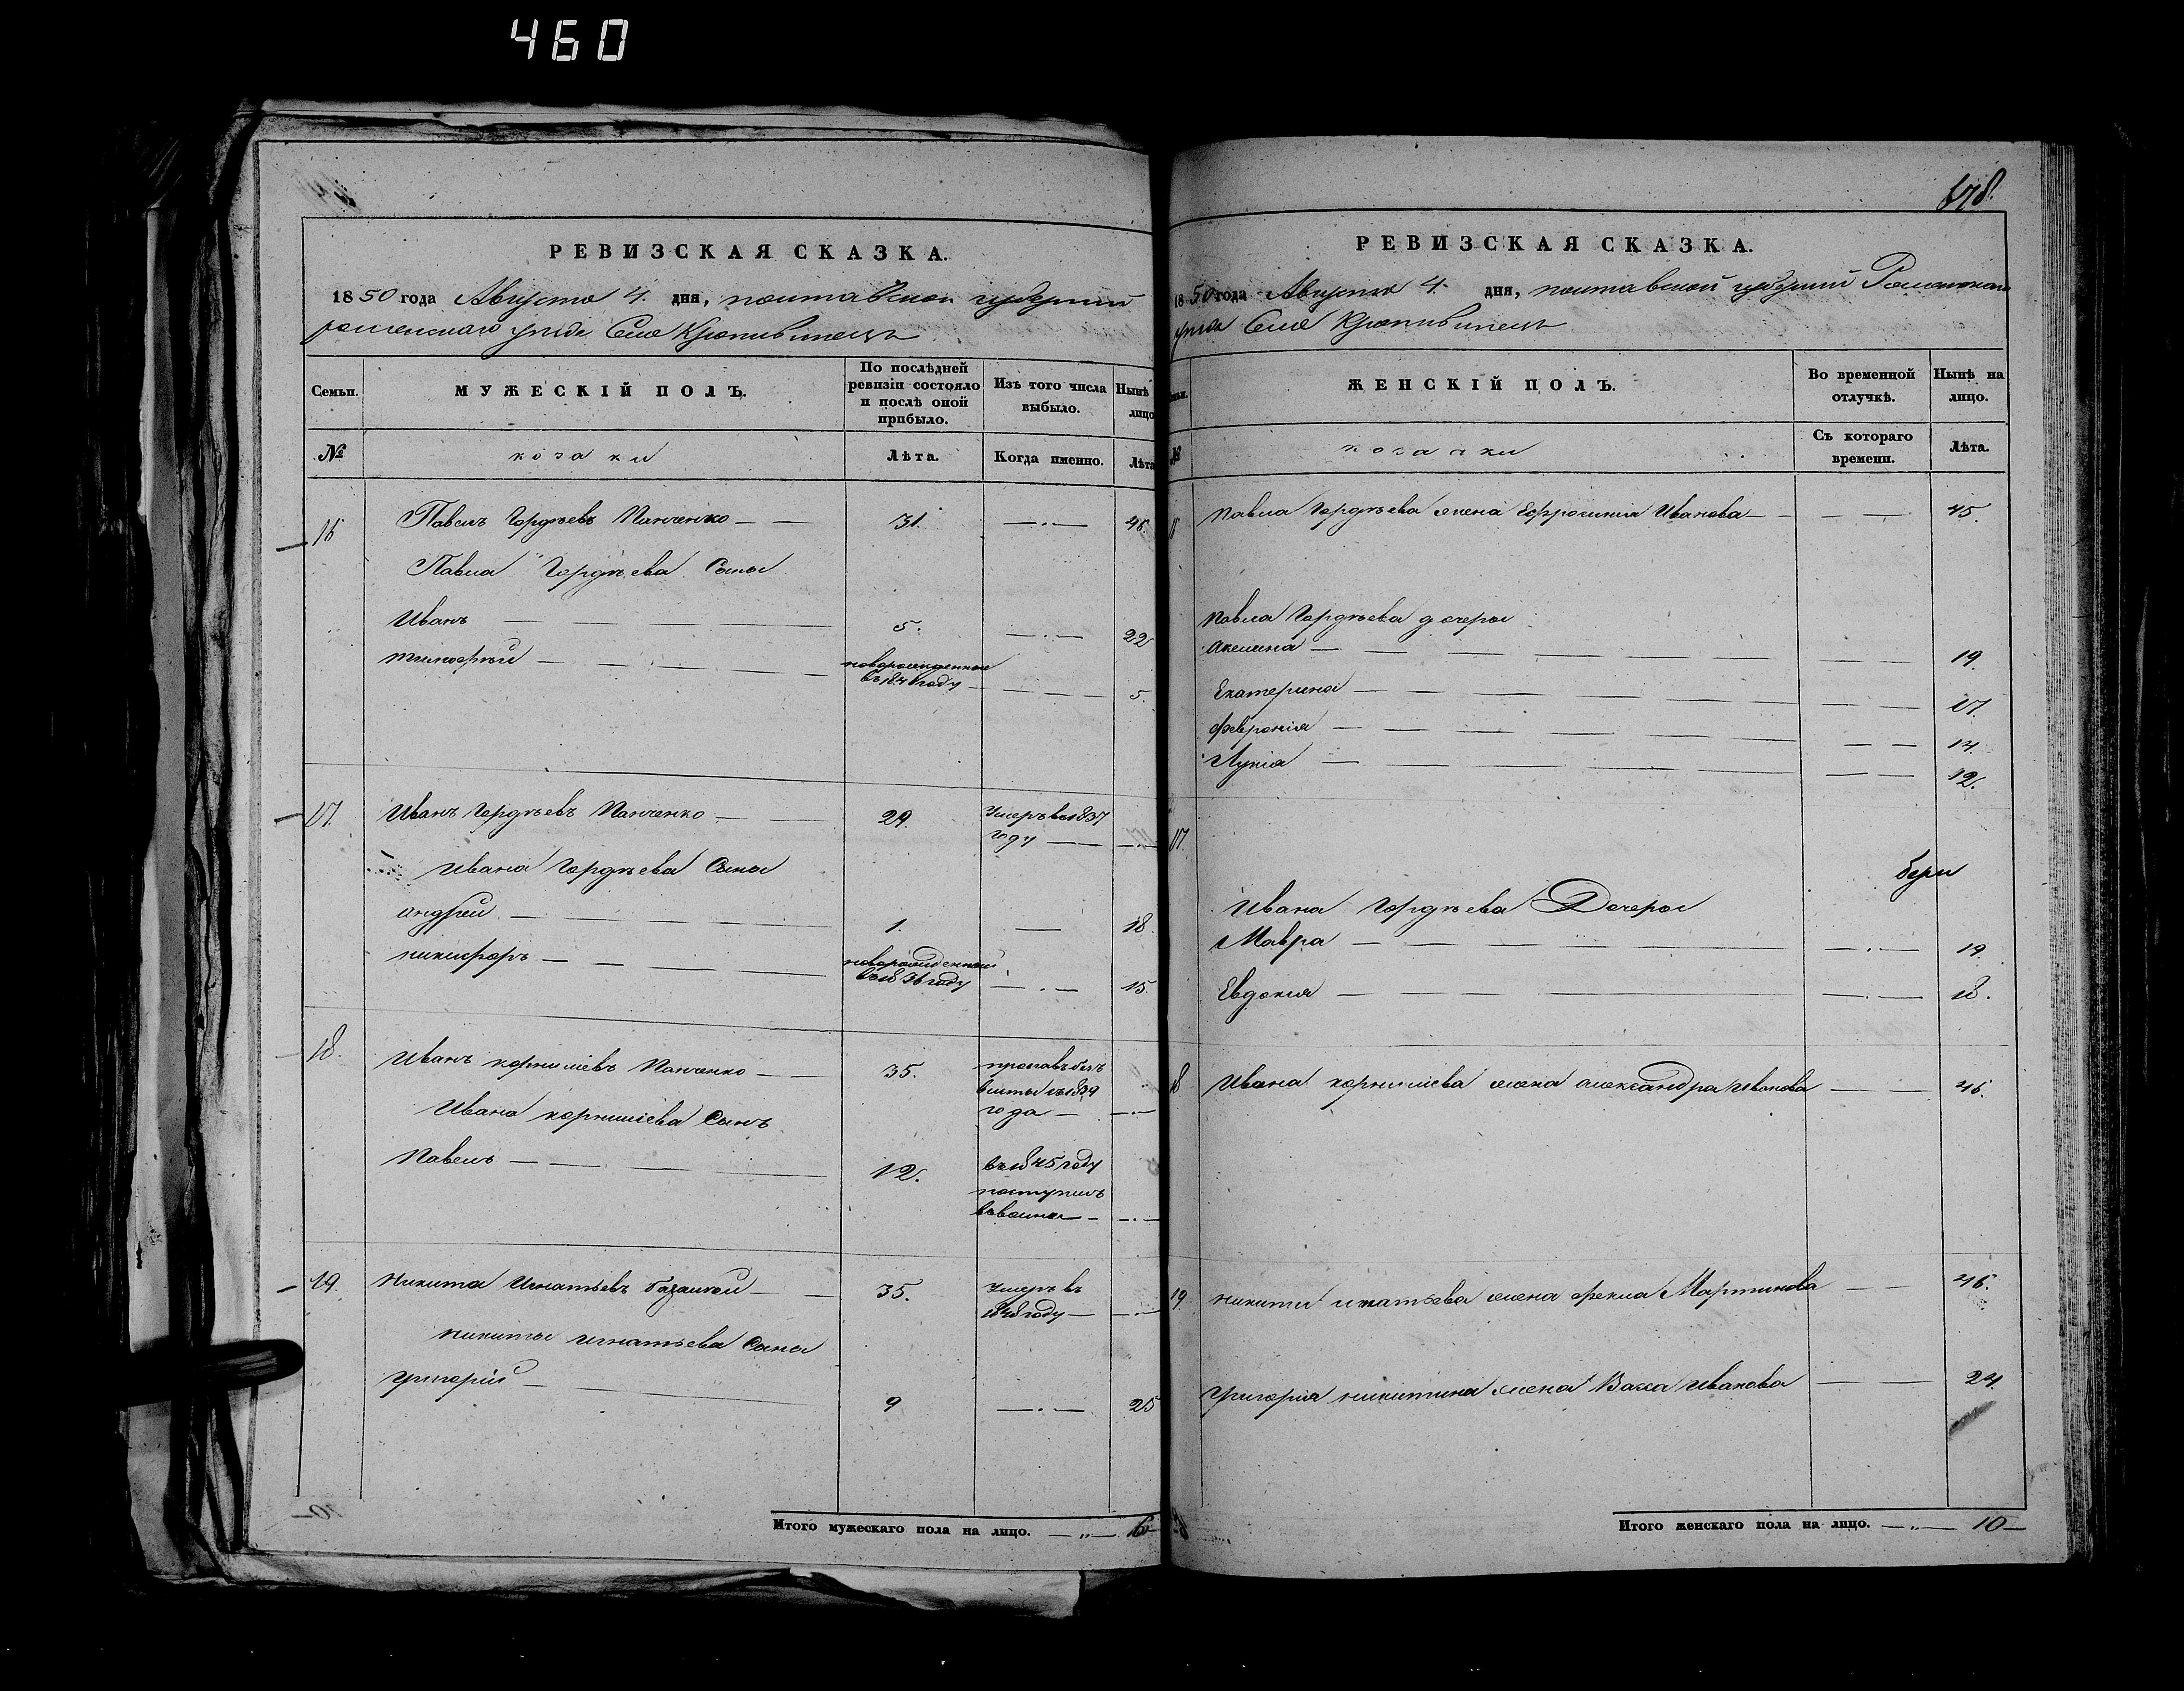 460
РЕВИЗСКАЯ СКАЗКА.
1850 года Августа 4. дня, полтавской губернии
роменского уезда Село Кропивинецъ
Семьи.
МУЖЕСКІЙ ПОЛЪ.
По послѣдней ревизіи состояло и послѣ оной прибыло.
Изъ того числа выбыло.
Нынѣ
лицо
№
козаки
Лѣта.
Когда именно.
Лѣта
16 Павелъ Гордѣевъ Панченко 31. 46.
Павла Гордѣева Сыны
Иванъ 5. 22
тимофѣй новорожденный
въ 184 году 5.
17. Иванъ Гордѣевъ Панченко 29. Умеръ въ 1837
году
Ивана Гордѣева Сыны
андрей 1. 18
никифоръ новорожденный
въ 1836 году 15.
18. Иванъ корниліевъ Панченко 35. пропавъ безъ
вѣсты съ 1839
года
Ивана корниліева Сынъ
Павелъ 12. въ 1845 году
поступилъ
19. Никита Игнатьевъ 35. Умеръ въ
1848 году
никиты игнатьева Сыны
григорій 9 25
Итого мужескаго пола на лицо. 6
678.
РЕВИЗСКАЯ СКАЗКА.
1850 года Августа 4. дня, полтавской губерніи Роменского
уезда Село Кропивинецъ
ЖЕНСКІЙ ПОЛЪ.
Во временной отлучкѣ.
Нынѣ на лицо.
№
козачки
Съ котораго времени.
Лѣта.
Павла Гордѣева жена Ефросинія Иванова 45.
Павла Гордѣева дочеры
Акелина 19.
Екатерина 17.
Февронія 14.
Лукія 12.
17.
Ивана Гордѣева Дочеры
Мавра 19.
Евдокия 18.
18 Ивана корниліева жена александра Иванова 46.
19. никиты игнатьева жена фекла Мартинова 46.
григория никитина жена Васса Иванова 24.
Итого женскаго пола на лицо. 10